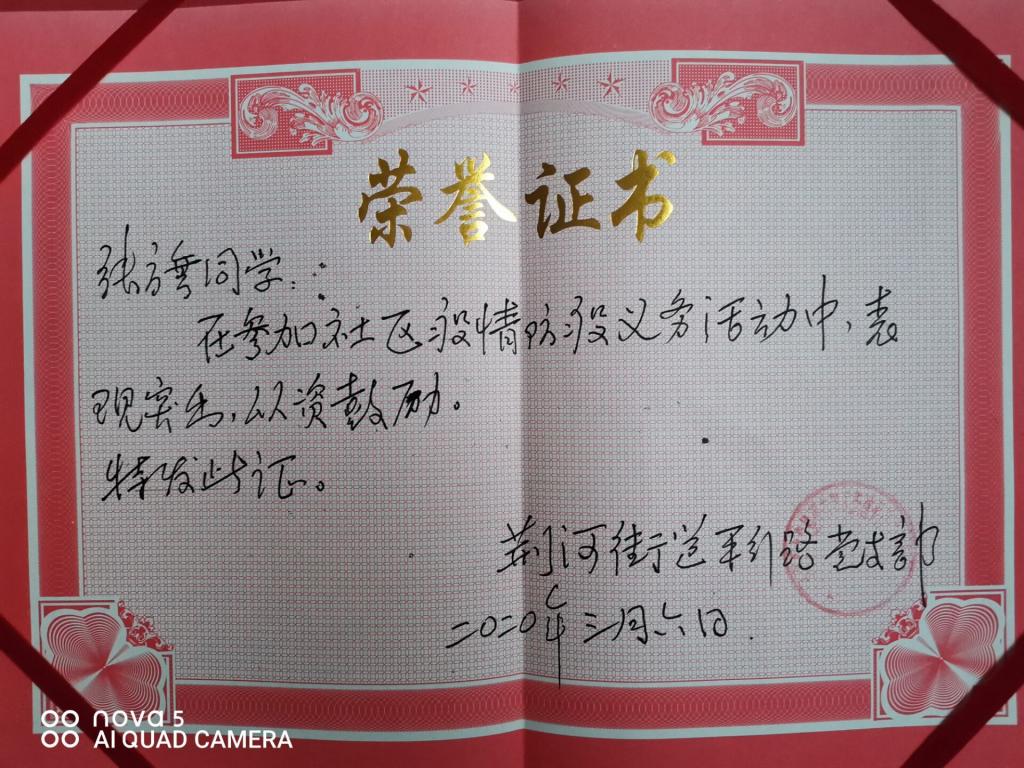 荣誉证书
张方 同学:
在参加社区疫情防疫义务活动中,表
现突出,以资鼓励。
特发此证。
荆河街道 路党支部
二〇二〇年三月六日.
nova 5
AI QUAD CAMERA